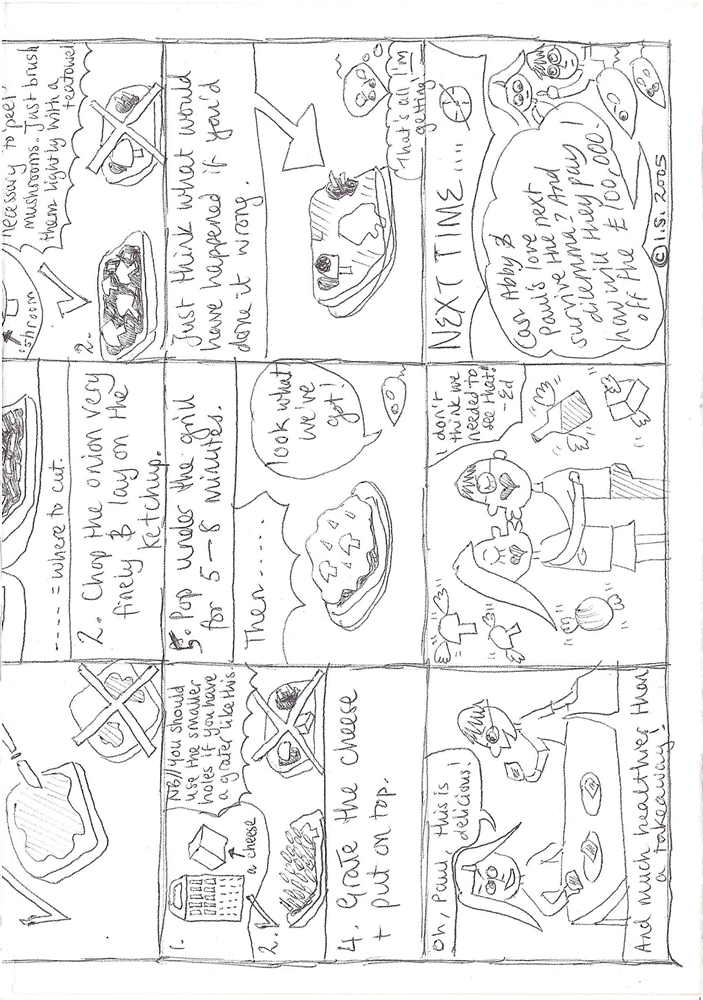 ---- = where to cut.
2. Chop the onion very
finely & lay on the
ketchup.
necessary to 'peel'
mushrooms. Just brush
them lightly with a
teatowel
shroom
2.
1.
NB// you should
use the smaller
holes if you have
a grater like this
a cheese
2.
4. Grate the cheese
+ put on top.
5. Pop under the grill
for 5 → 8 minutes.
Then.....
look what
we've
got!
Just think what would
have happened if you'd
done it wrong.
That's all I'm
getting!
Oh, Paul, this is
delicious!
And much healthier than
a takeaway!
I don't
think we
needed to
see that!
- Ed
NEXT TIME....
Can Abby &
Paul's love
survive the next
dilemma? And
how will they pay
off the £100,000!
© I.S. 2005